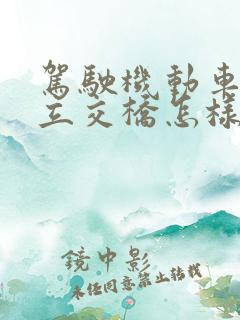 駕駛機動車
立交橋怎樣
鏡中影
未經同意禁止轉載